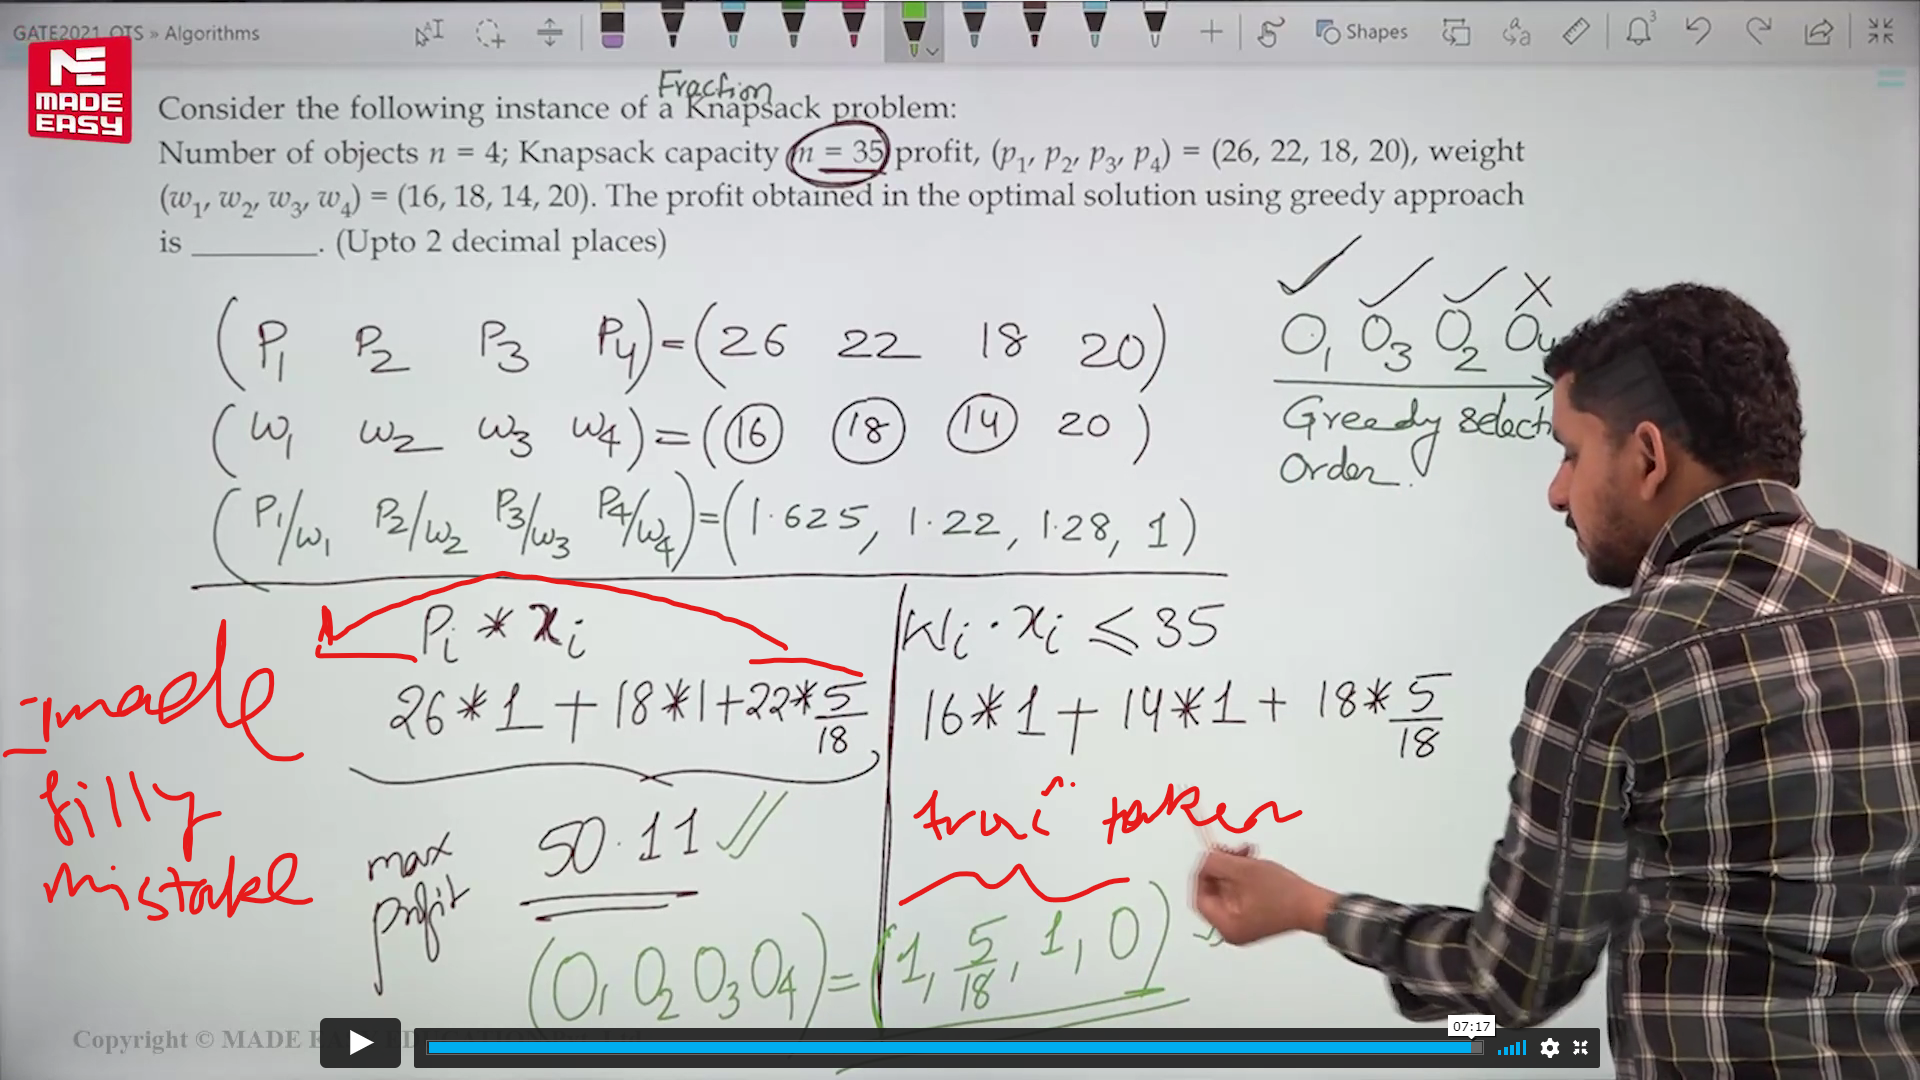 GATE2021_OTS » Algorithms
Shapes
3
ME
MADE
EASY
Fraction
Consider the following instance of a Knapsack problem:
Number of objects n = 4; Knapsack capacity n = 35 profit, (p₁, p₂, p₃, p₄) = (26, 22, 18, 20), weight
(w₁, w₂, w₃, w₄) = (16, 18, 14, 20). The profit obtained in the optimal solution using greedy approach
is ________. (Upto 2 decimal places)
(P₁ P₂ P₃ P₄) = (26 22 18 20)
(w₁ w₂ w₃ w₄) = (16 18 14 20)
(P₁/w₁ P₂/w₂ P₃/w₃ P₄/w₄) = (1.625, 1.22, 1.28, 1)
O₁ O₃ O₂ O₄
Greedy selecti
Order.
Pi * xi
26*1 + 18*1 + 22*5/18
max profit
50.11
Wi · xi ≤ 35
16*1 + 14*1 + 18*5/18
(O₁ O₂ O₃ O₄) = (1, 5/18, 1, 0)
made
silly
mistake
taken
Copyright © MADE EA
07:17